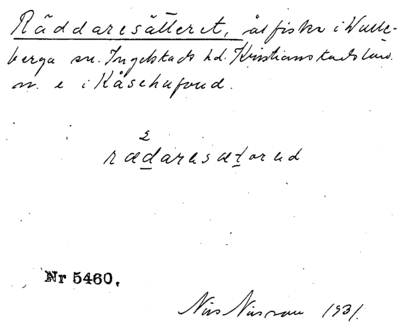 Räddaresätteret, ålfiske i Valle-
berga sn. Ingelstads hd. Kristianstads län.
m. e i Kåsehufoud.
2
rädaresätorud
Nr 5460.
Nils Nilsson 1931.